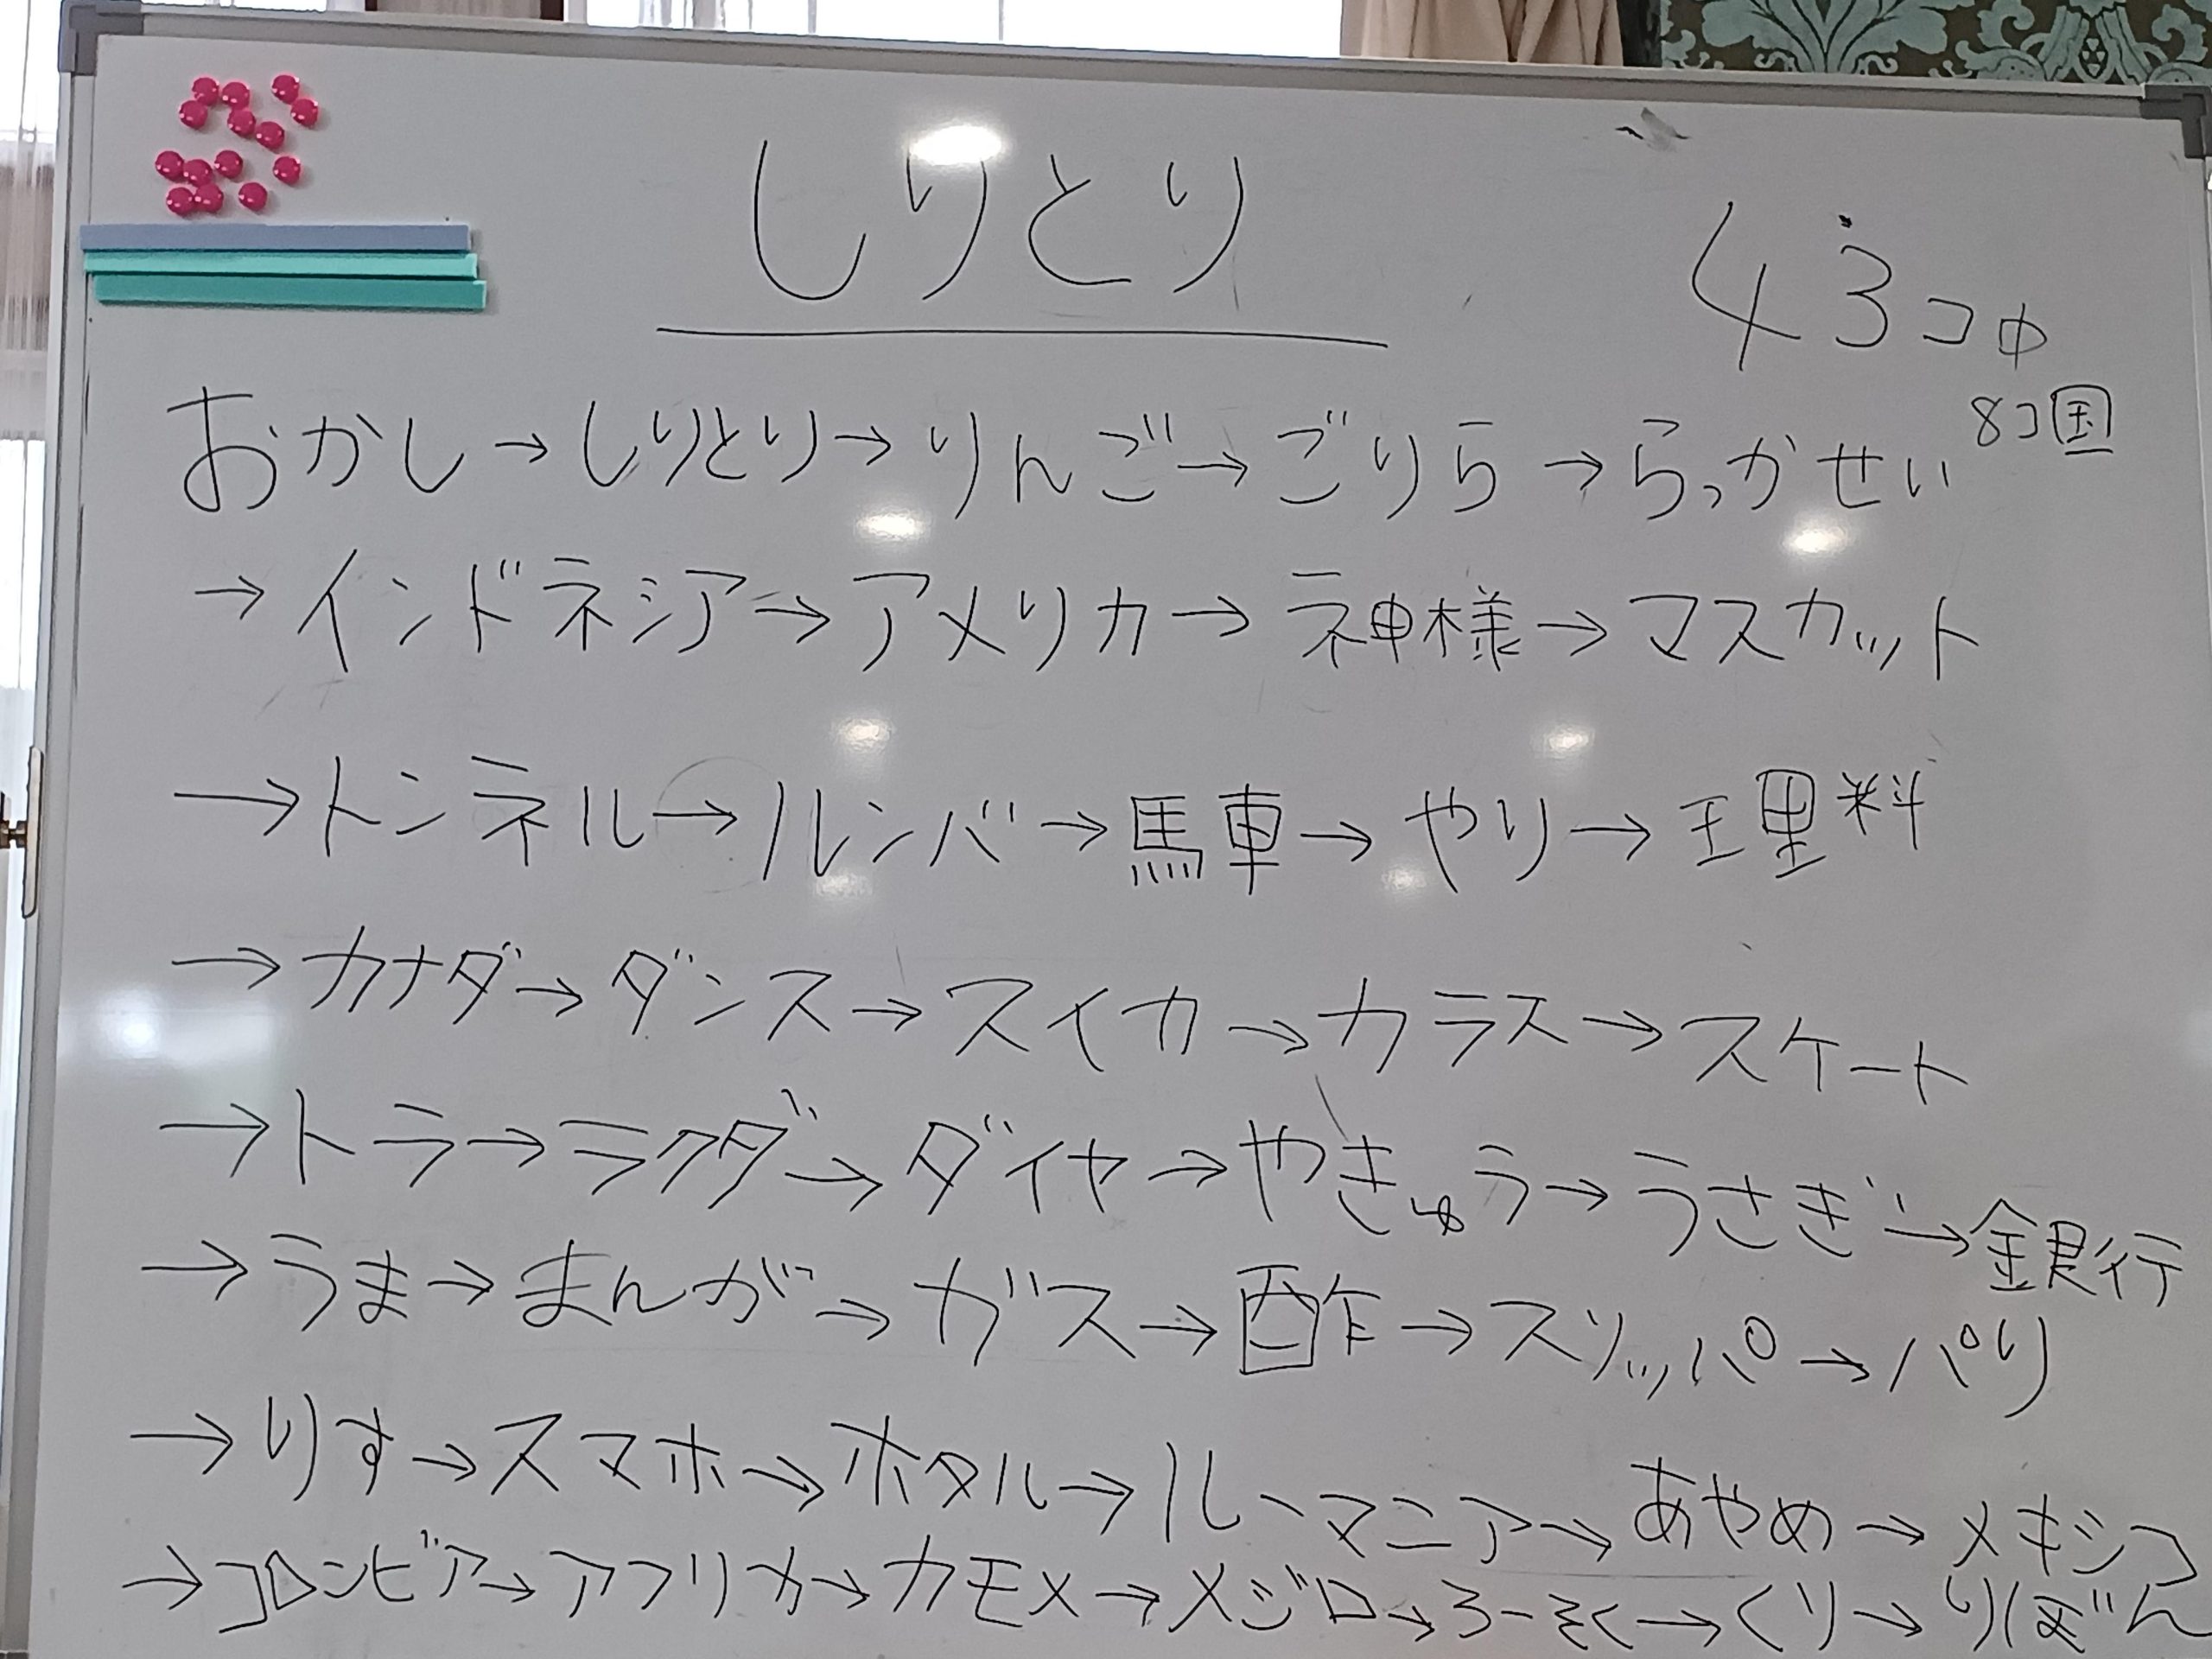 しりとり
43コ中
8コ国
おかし→しりとり→りんご→ごりら→らっかせい
→インドネシア→アメリカ→神様→マスカット
→トンネル→ルンバ→馬車→やり→理料
→カナダ→ダンス→スイカ→カラス→スケート
→トラ→ラクダ→ダイヤ→やきゅう→うさぎ→銀行
→うま→まんが→ガス→酢→スリッパ→パリ
→りす→スマホ→ホタル→ルーマニア→あやめ→メキシコ
→コロンビア→アフリカ→カモメ→メジロ→ろーそく→くり→りぼん